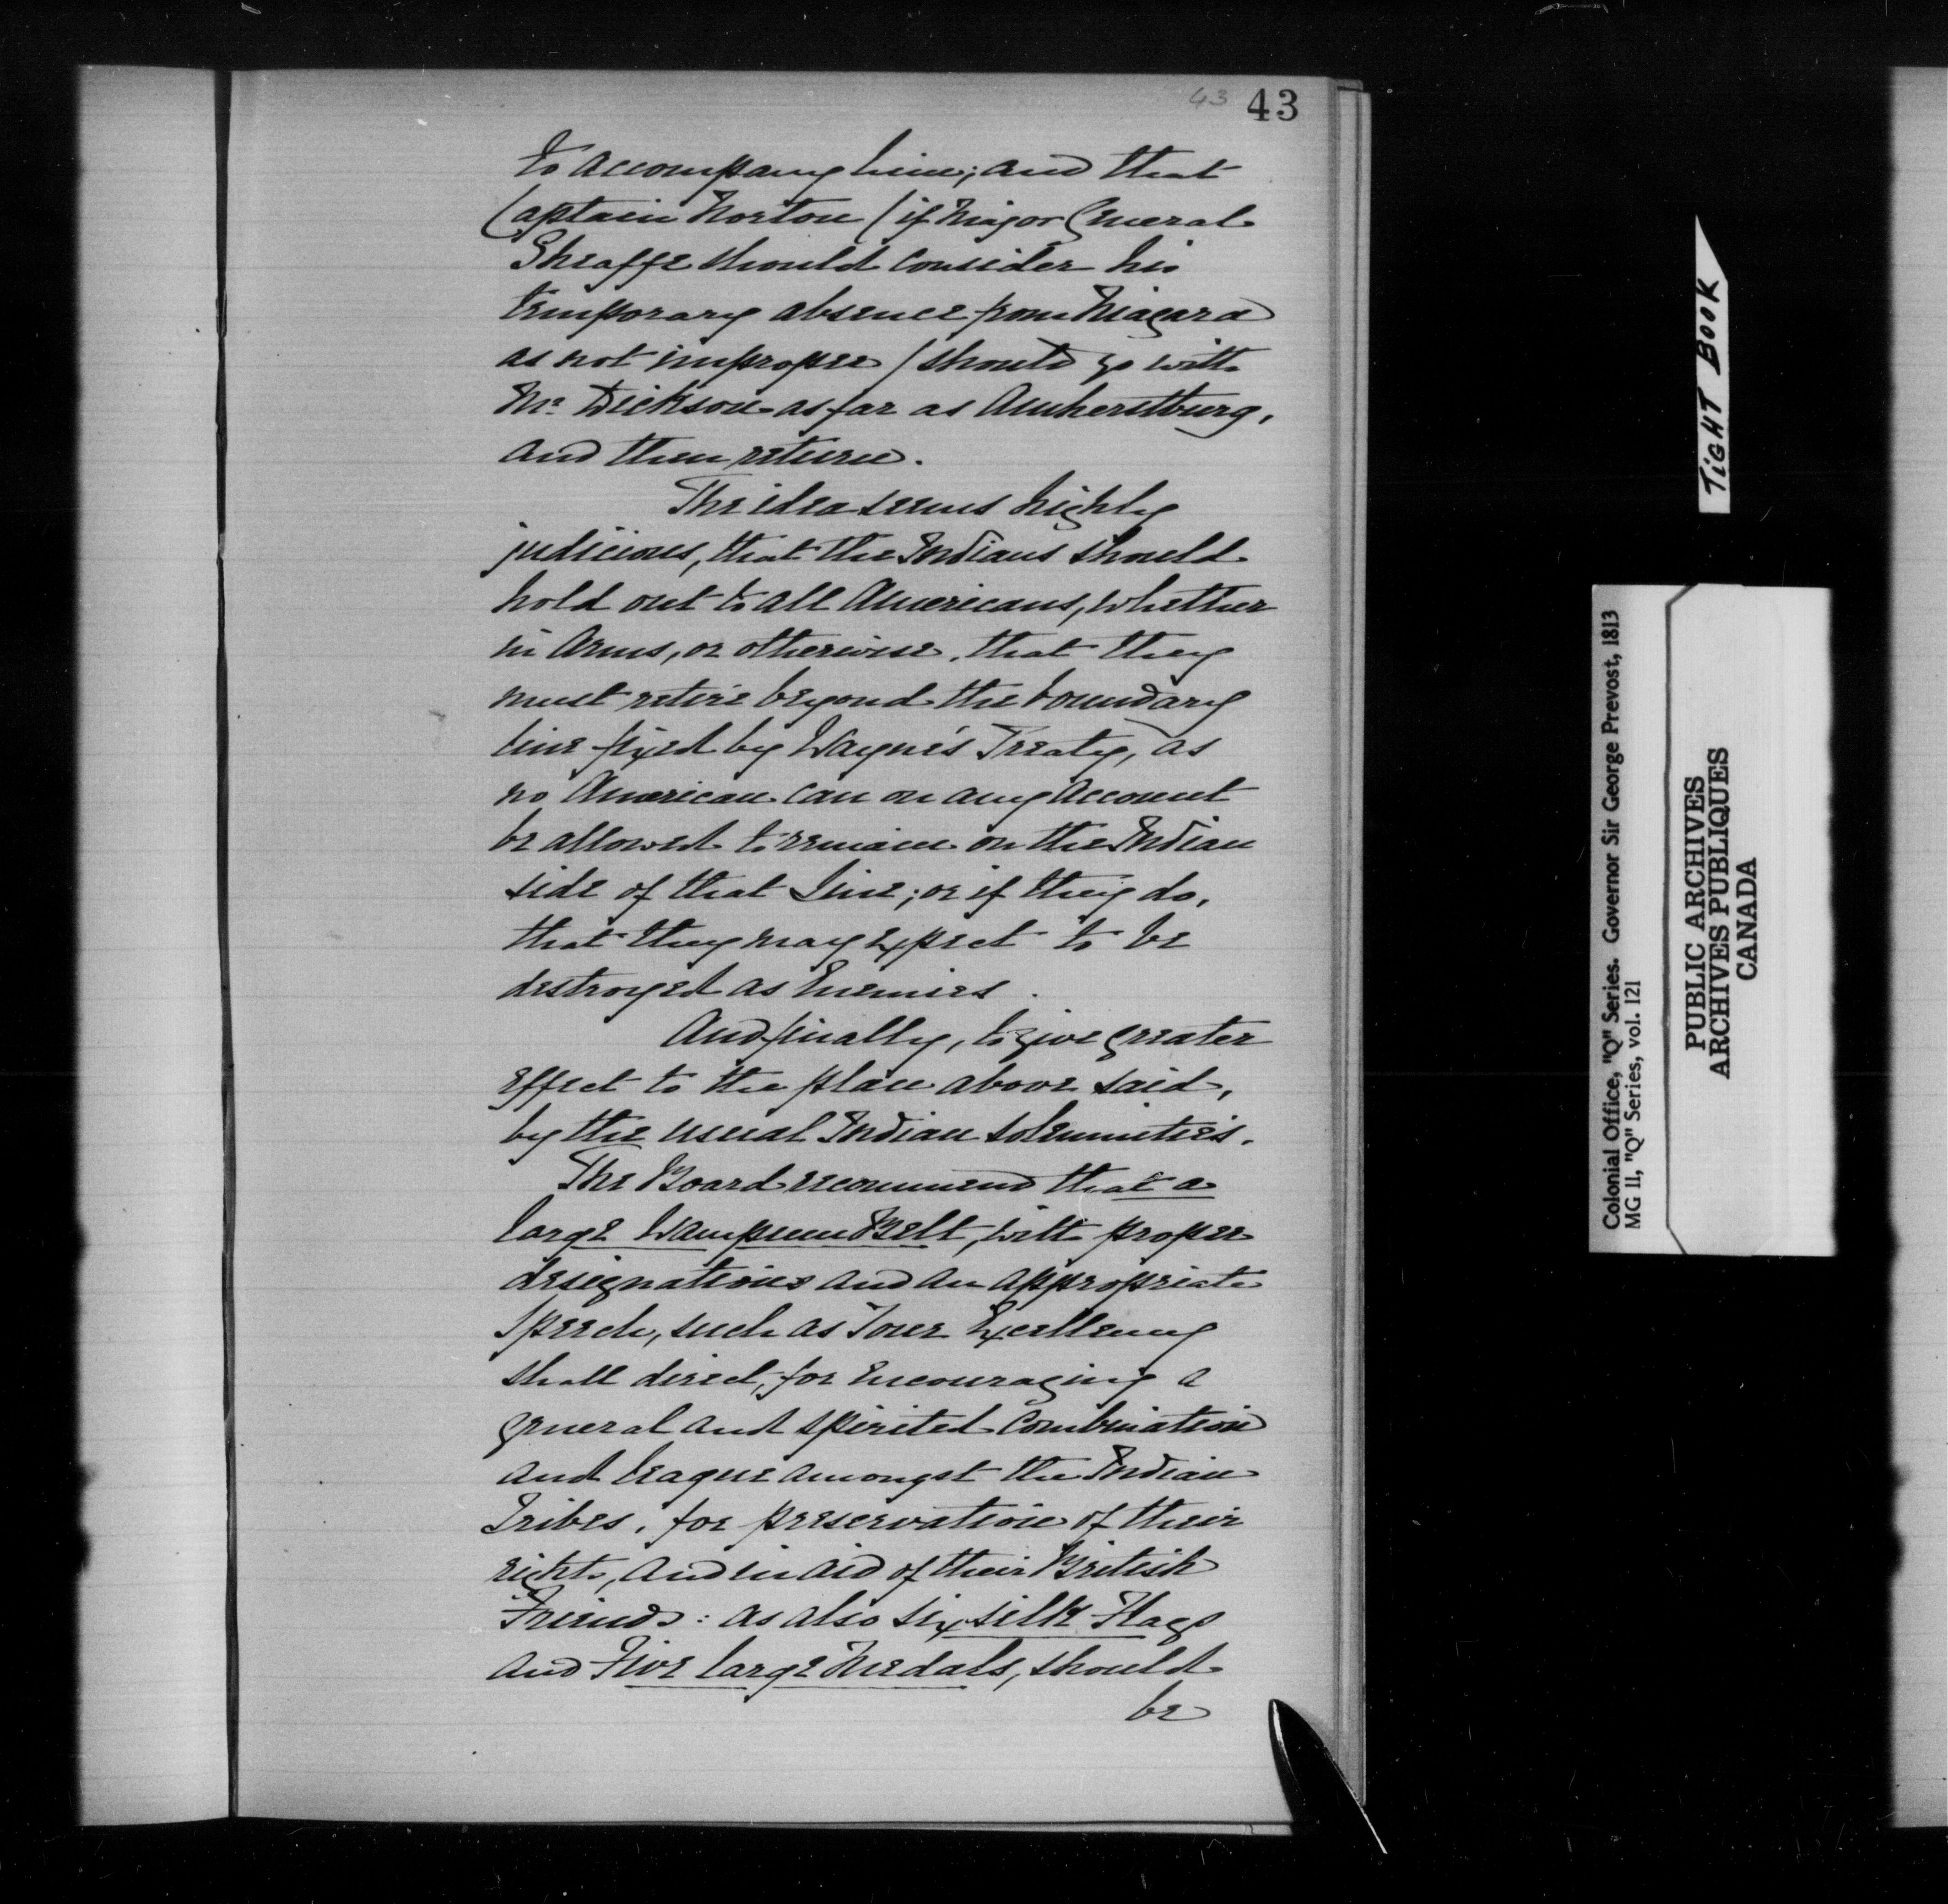 43 43
to accompany him; and that
Captain Norton (if Major General
Sheaffe should consider his
temporary absence from Niagara
as not improper) should go with
Mr. Dickson as far as Amherstburg,
and then return.
The idea seems highly
judicious, that the Indians should
hold out to all Americans, whether
in Arms, or otherwise, that they
must retire beyond the boundary
line fixed by Wayne's Treaty, as
no American can on any account
be allowed to remain on the Indian
side of that Line; or if they do,
that they may expect to be
destroyed as Enemies.
And finally, to give greater
effect to the plan above said,
by the usual Indian solemnities.
The Board recommend that a
large Wampum Belt, with proper
designations and an appropriate
Speech, such as Your Excellency
shall direct, for encouraging a
general and spirited combination
and league amongst the Indian
Tribes, for preservation of their
rights, and in aid of their British
Friends: as also six silk Flags
and Five large Medals, should
be
TIGHT BOOK
Colonial Office, "Q" Series. Governor Sir George Prevost, 1813
MG 11, "Q" Series, vol. 121
PUBLIC ARCHIVES
ARCHIVES PUBLIQUES
CANADA